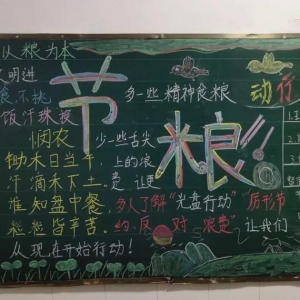 以粮为本
文明进
食,不挑
饭汗珠换
悯农
锄禾日当午
汗滴禾下土。
谁知盘中餐,
粒粒皆辛苦。
从现在开始行动!
节粮!!
多一些精神食粮
少一些舌尖
上的浪
费 让更
多人了解"光盘行动" 厉行节
约,反对浪费 让我们
动行
1.
2.
3.